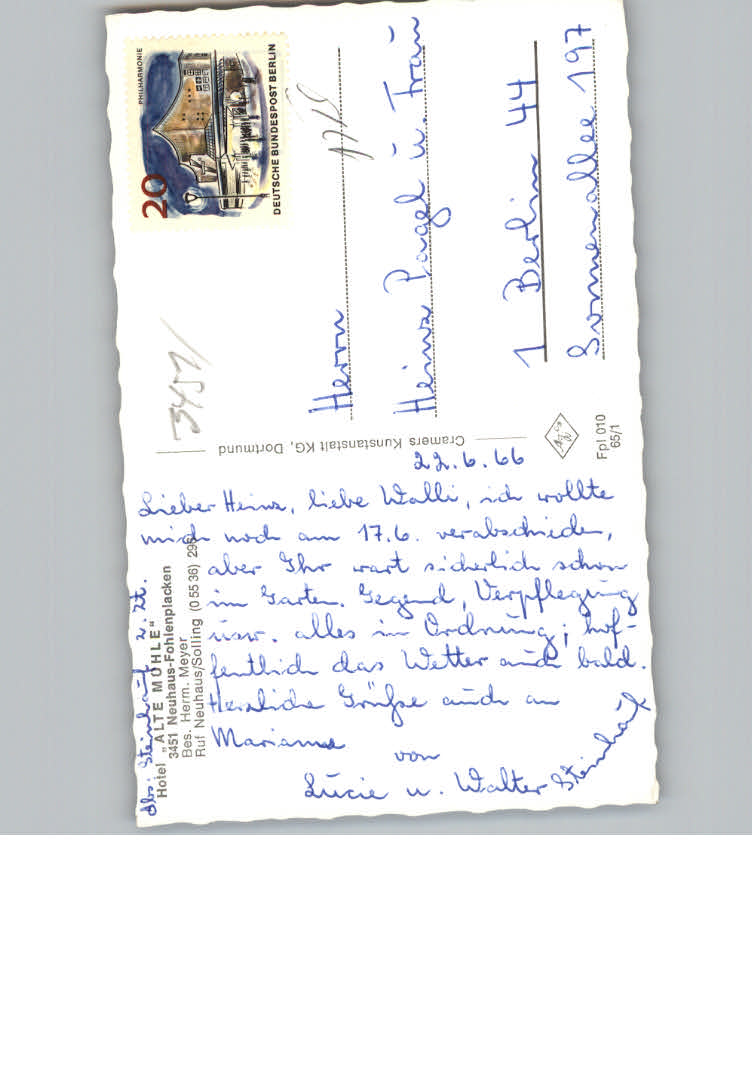 22.6.66
Lieber Heinz, liebe Walli, ich wollte
mich noch am 17.6. verabschieden,
aber Ihr wart sicherlich schon
im Garten. Gegend, Verpflegung
usw. alles in Ordnung; hof-
fentlich das Wetter auch bald.
Herzliche Grüße auch an
Marianne
von
Lucie u. Walter Steinhauf
Abs: Steinhauf z. Zt.
Hotel „ALTE MÜHLE"
3451 Neuhaus-Fohlenplacken
Bes. Herm. Meyer
Ruf Neuhaus/Solling (0 55 36) 295
Cramers Kunstanstalt KG, Dortmund
Fpl 010
65/1
3451/
PHILHARMONIE
20
DEUTSCHE BUNDESPOST BERLIN
Herrn
Heinz Pagel u. Frau
1 Berlin 44
Sonnenallee 197